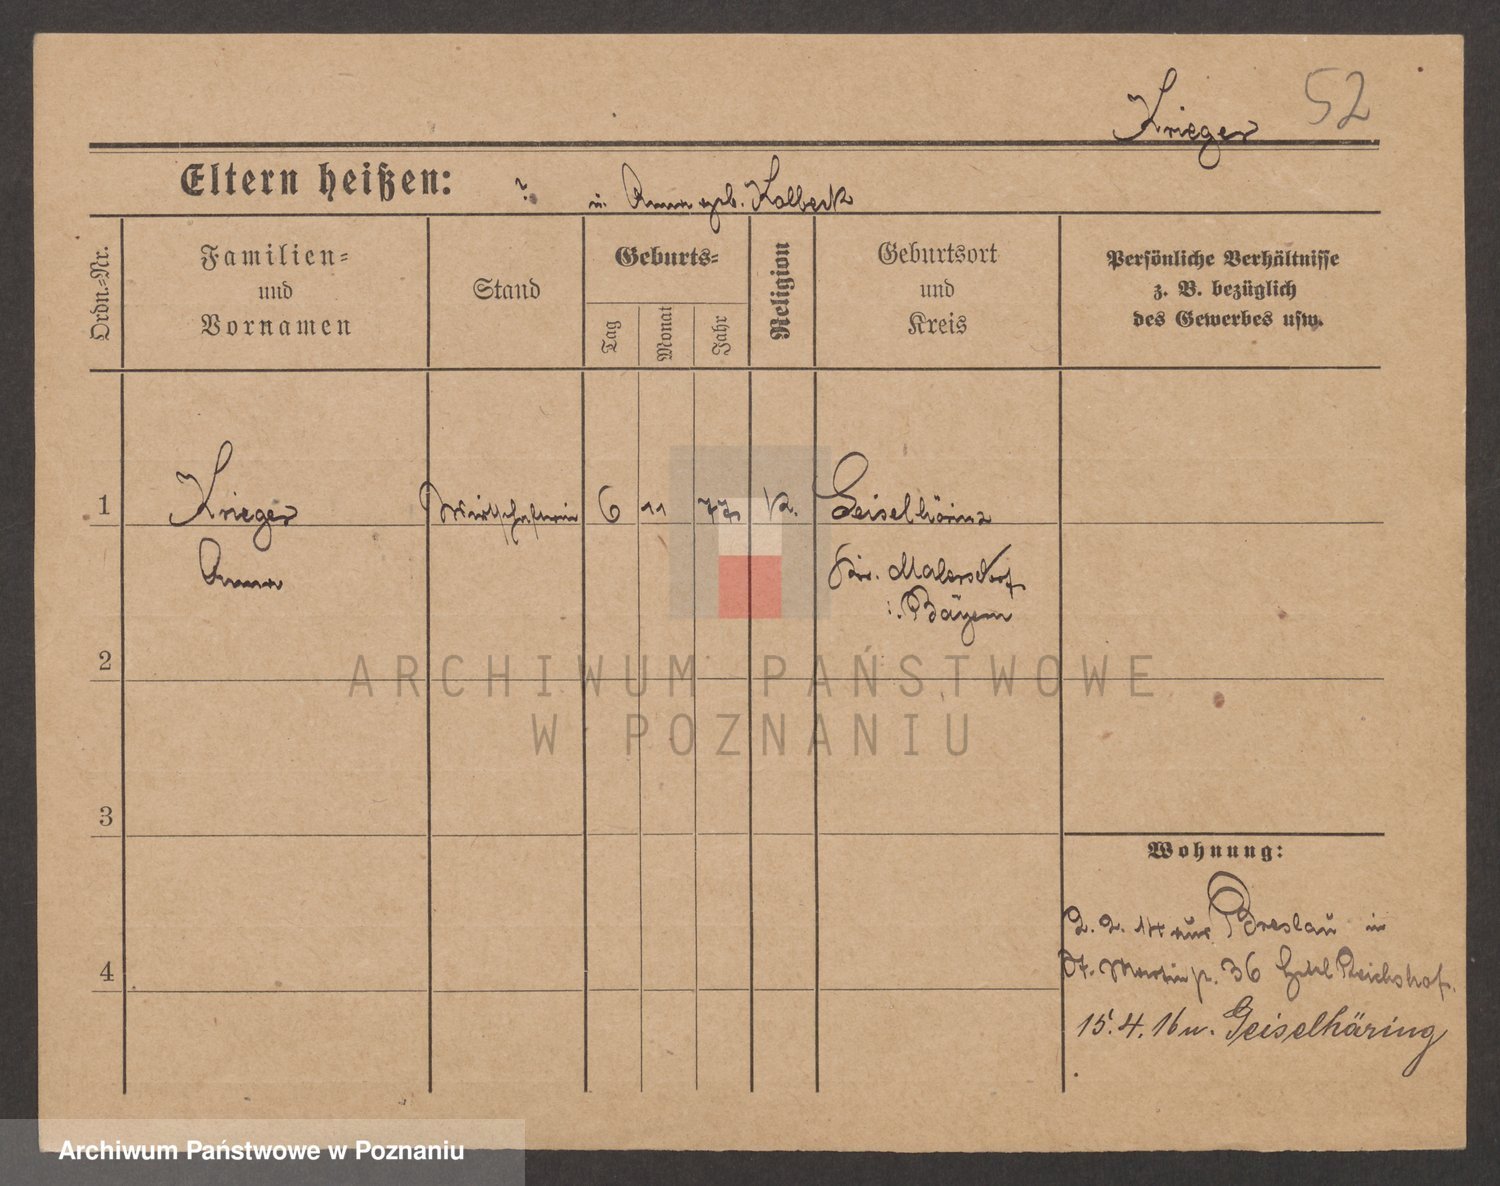 Krieger 52
Eltern heißen: ? u. Anna geb. Kolbeck
Ordn.-Nr.
Familien-
und
Vornamen
Stand
Geburts-
Tag
Monat
Jahr
Religion
Geburtsort
und
Kreis
Persönliche Verhältnisse
z. B. bezüglich
des Gewerbes usw.
1 Krieger Wirtschafterin 6 11 77 K. Geiselhöring
Anna Kr. Malersdorf
i. Bayern
2
ARCHIWUM PAŃSTWOWE
W POZNANIU
3
Wohnung:
2. 2. 14 aus Breslau in
4 St. Martin p. 36 Hotel Reichshof.
15. 4. 16 n. Geiselhäring
Archiwum Państwowe w Poznaniu